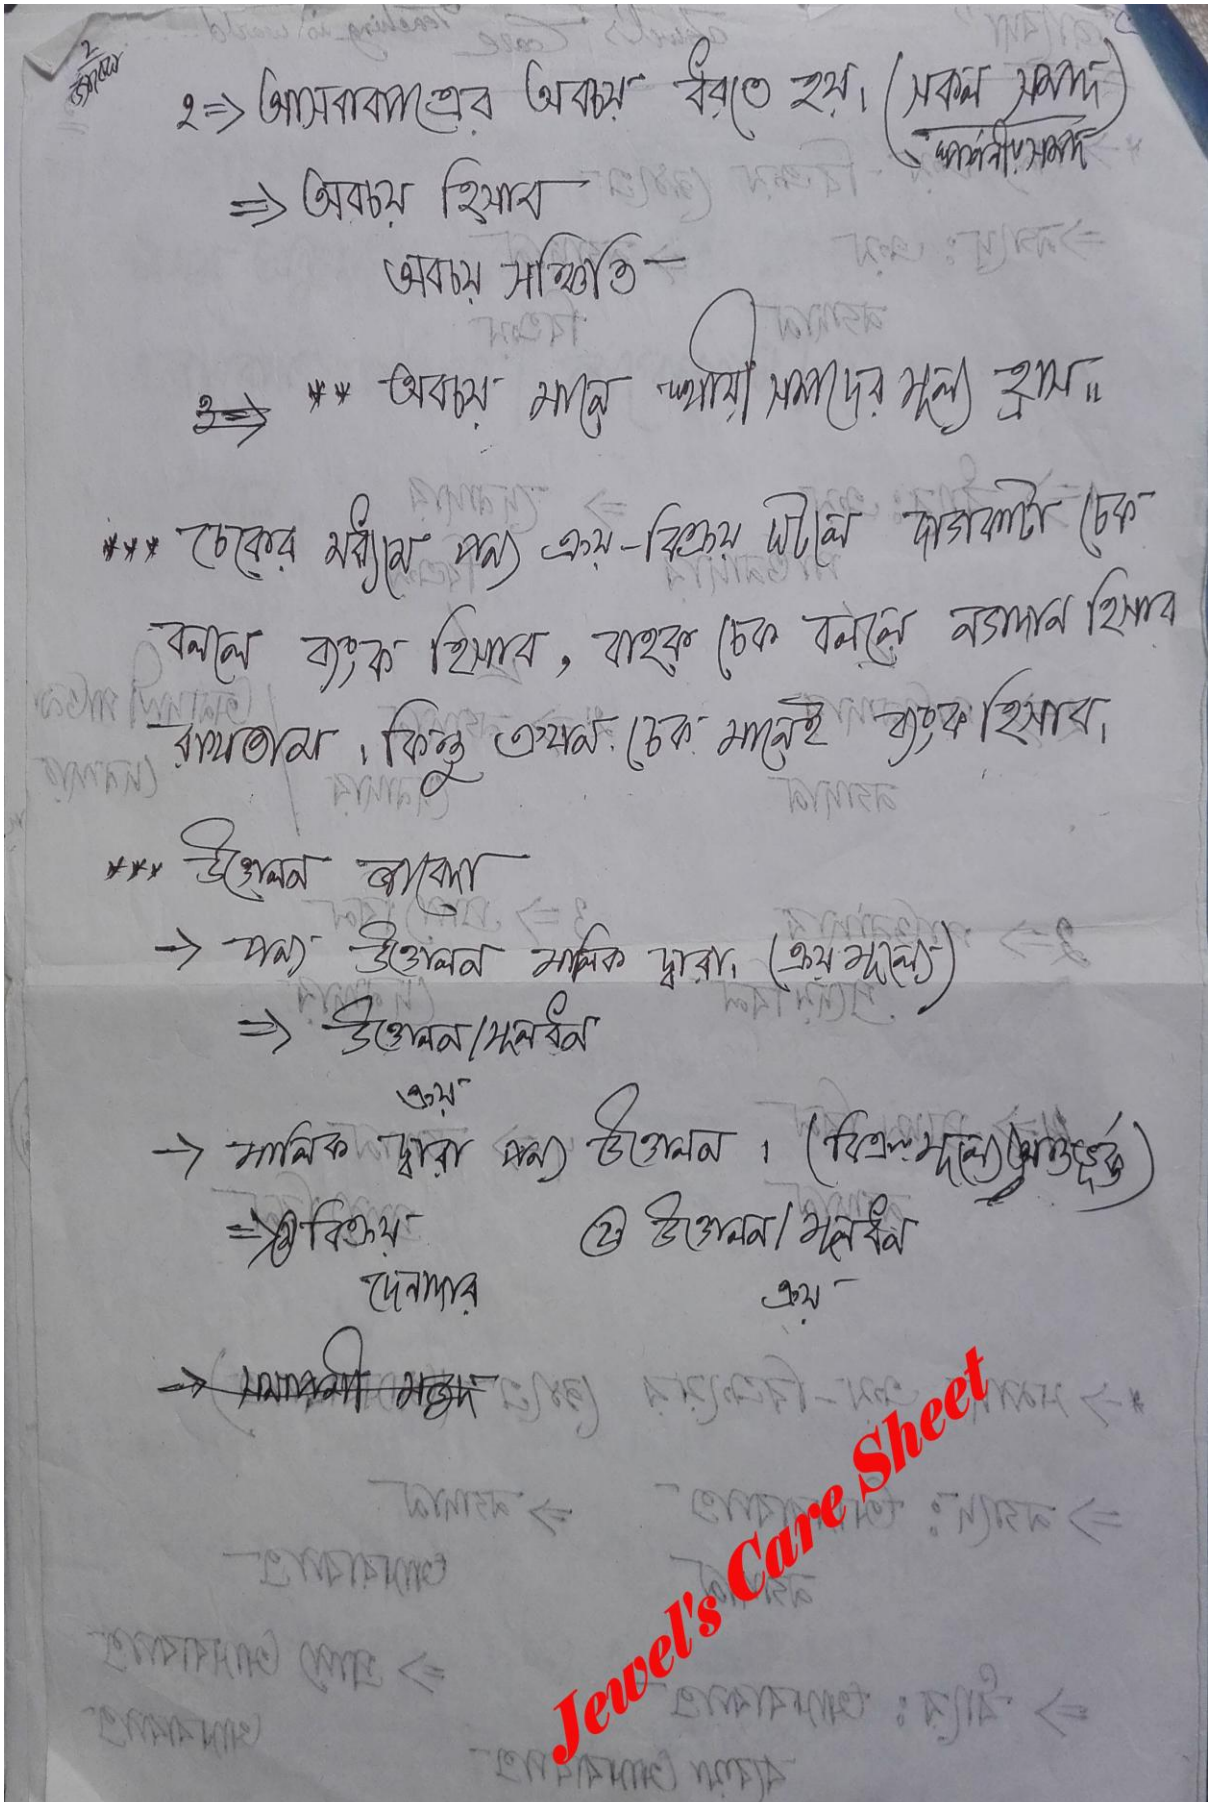 2
জাবেদা
২=> আসবাবপত্রের অবচয় ধরতে হয়। (সকল সম্পদ)
দৃশ্যমানীয় সম্পদ
=> অবচয় হিসাব
অবচয় সঞ্চিতি
৩=> ** অবচয় মানে স্থায়ী সম্পদের মূল্য হ্রাস॥
*** চেকের মাধ্যমে পন্য ক্রয়-বিক্রয় ঘটলে দাগকাটা চেক
বললে ব্যাংক হিসাব, বাহক চেক বললে নগদান হিসাব
রাখতাম। কিন্তু এখন চেক মানেই ব্যাংক হিসাব।
*** উত্তোলন জাবেদা
-> পন্য উত্তোলন মালিক দ্বারা। (ক্রয়মূল্যে)
=> উত্তোলন/মূলধন
ক্রয়
-> মালিক দ্বারা পন্য উত্তোলন। (বিক্রয়মূল্যে)
=> বিক্রয় উত্তোলন/মূলধন
দেনাদার ক্রয়
-> মজুদ
Jewel's Care Sheet